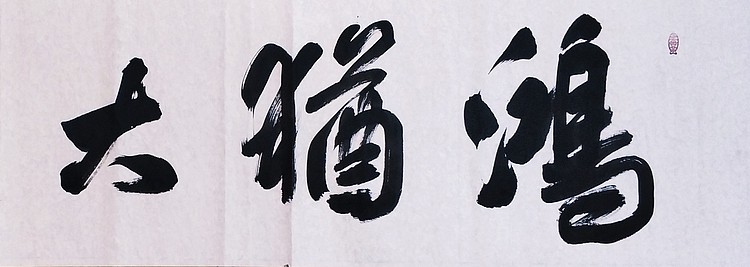 鴻猶大